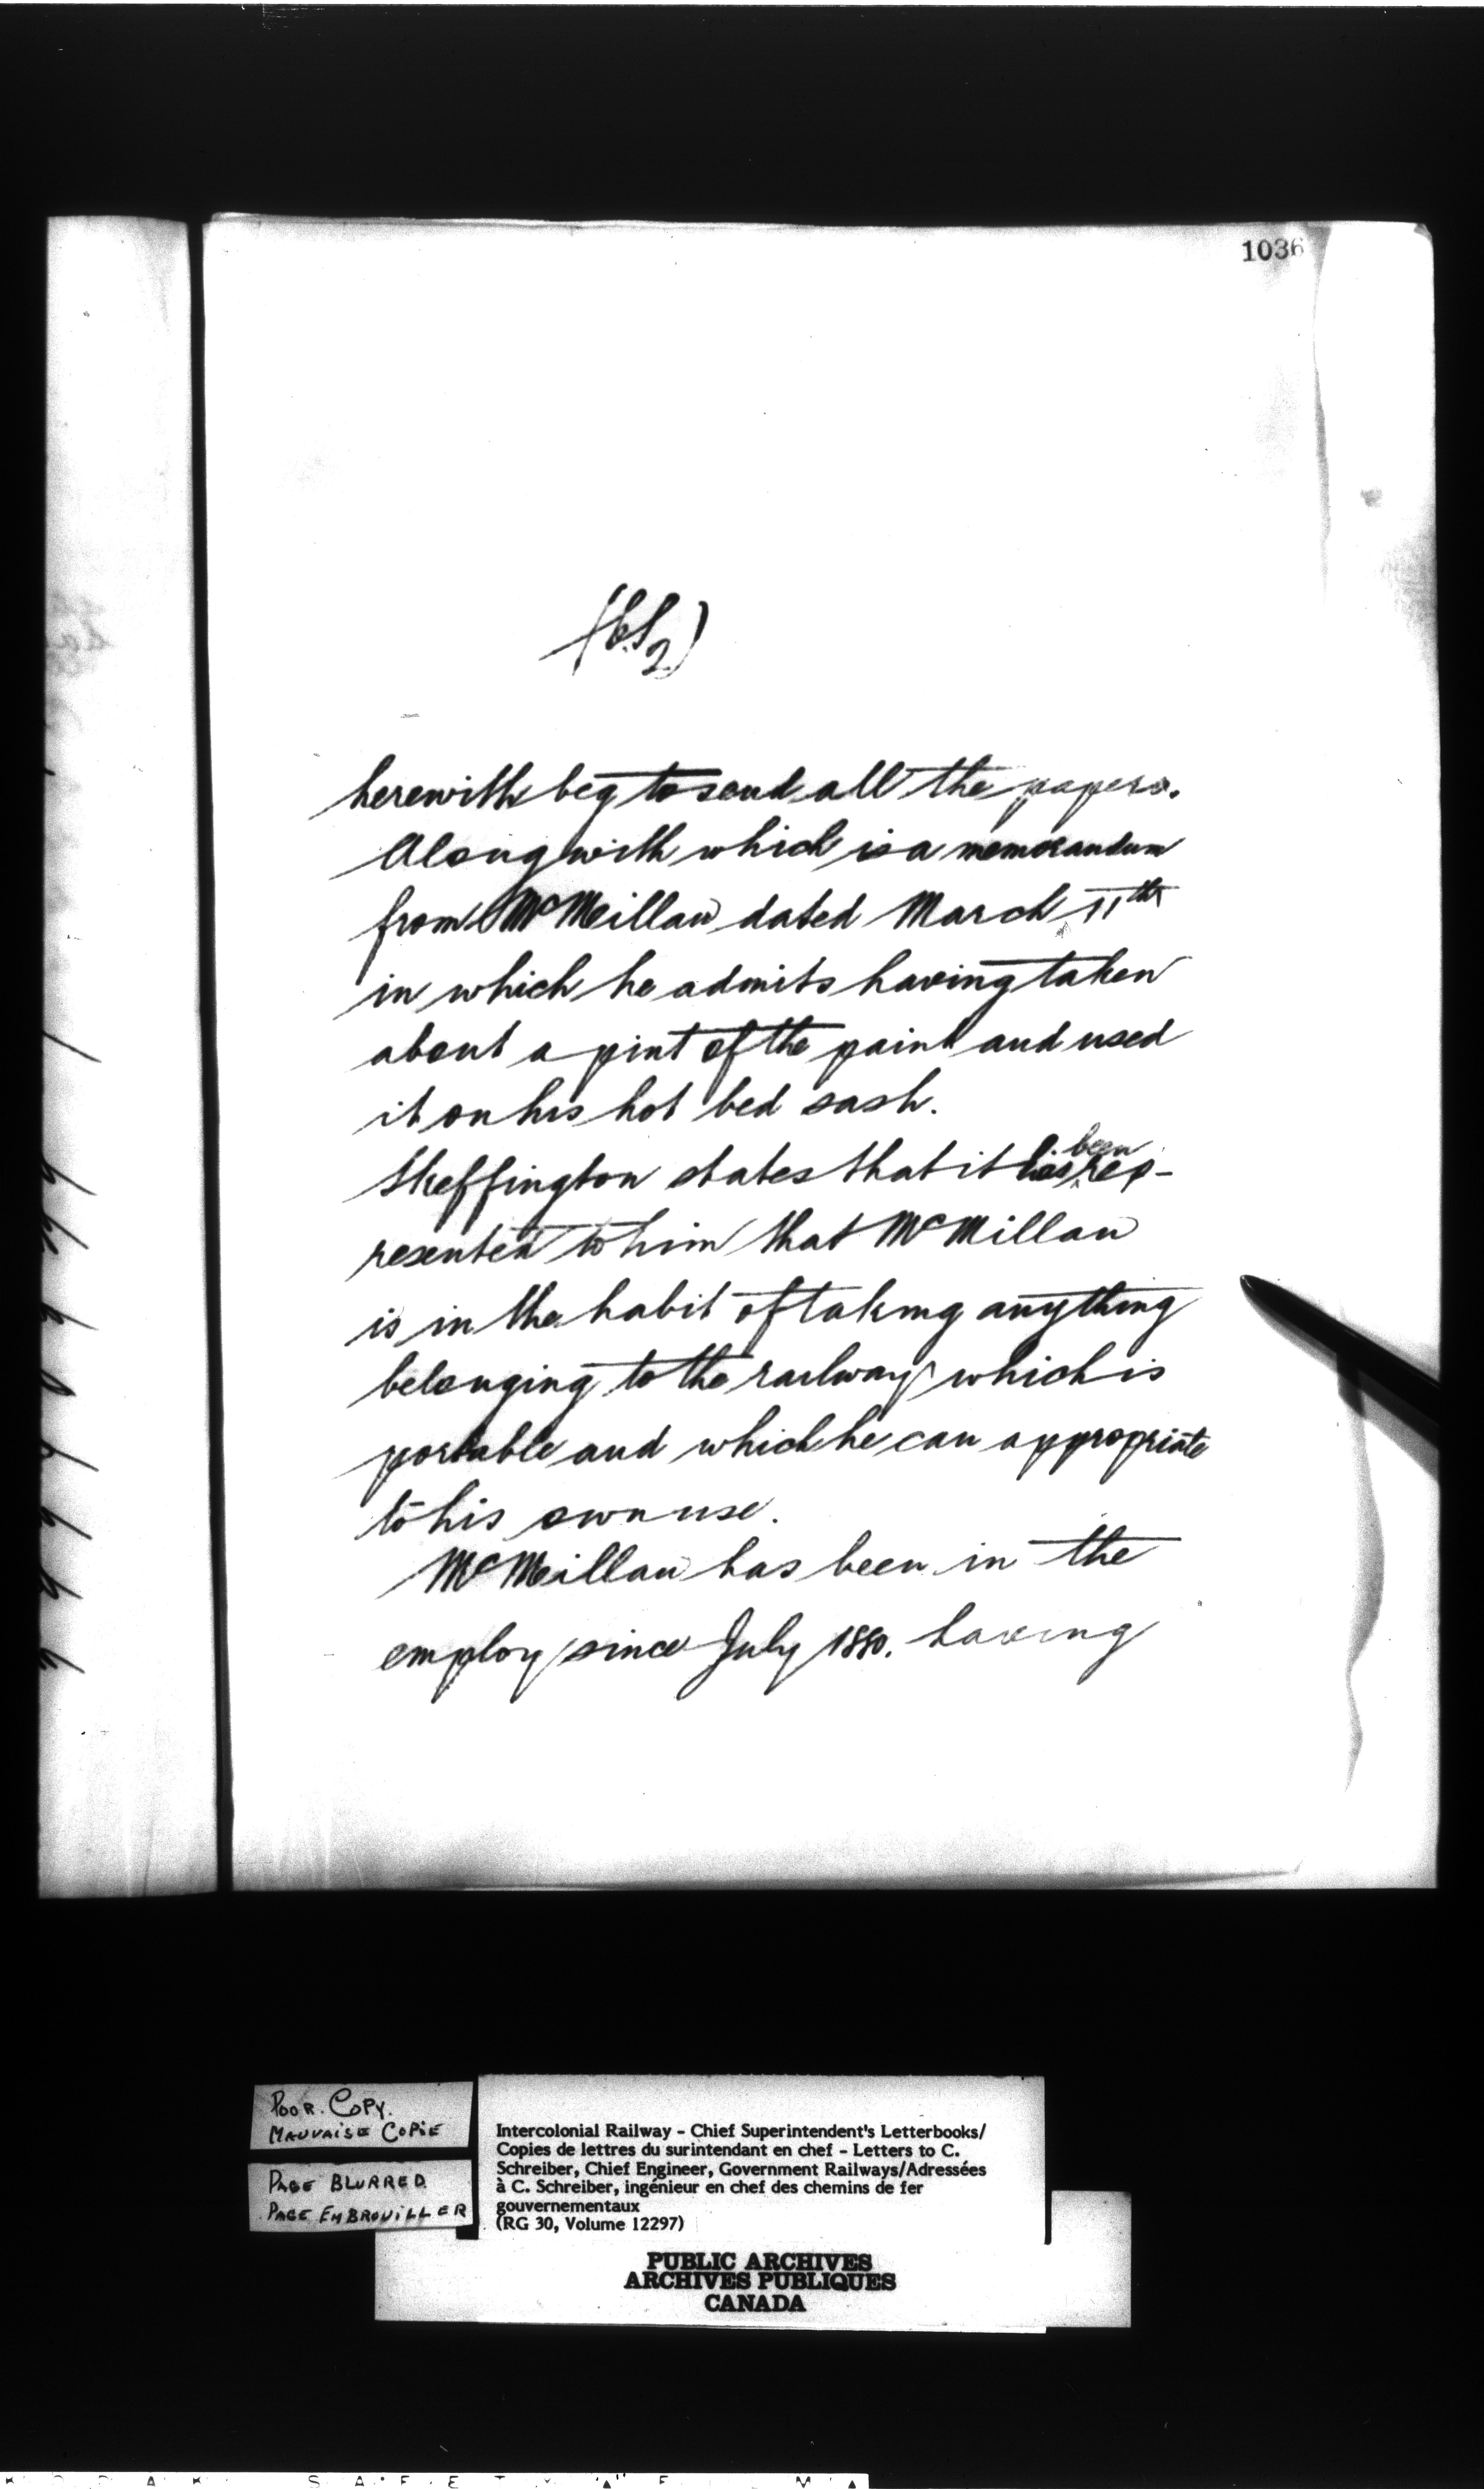 1036
herewith beg to send all the papers.
Along with which is a memorandum
from McMillan dated March 11th
in which he admits having taken
about a pint of the paint and used
it on his hot bed sash.
Skeffington states that it has been rep-
resented to him that McMillan
is in the habit of taking anything
belonging to the railway which is
portable and which he can appropriate
to his own use.
McMillan has been in the
employ since July 1880. having
POOR. COPY.
MAUVAISE COPIE
PAGE BLURRED
PAGE EMBROUILLER
Intercolonial Railway - Chief Superintendent's Letterbooks/
Copies de lettres du surintendant en chef - Letters to C.
Schreiber, Chief Engineer, Government Railways/Adressées
à C. Schreiber, ingénieur en chef des chemins de fer
gouvernementaux
(RG 30, Volume 12297)
PUBLIC ARCHIVES
ARCHIVES PUBLIQUES
CANADA